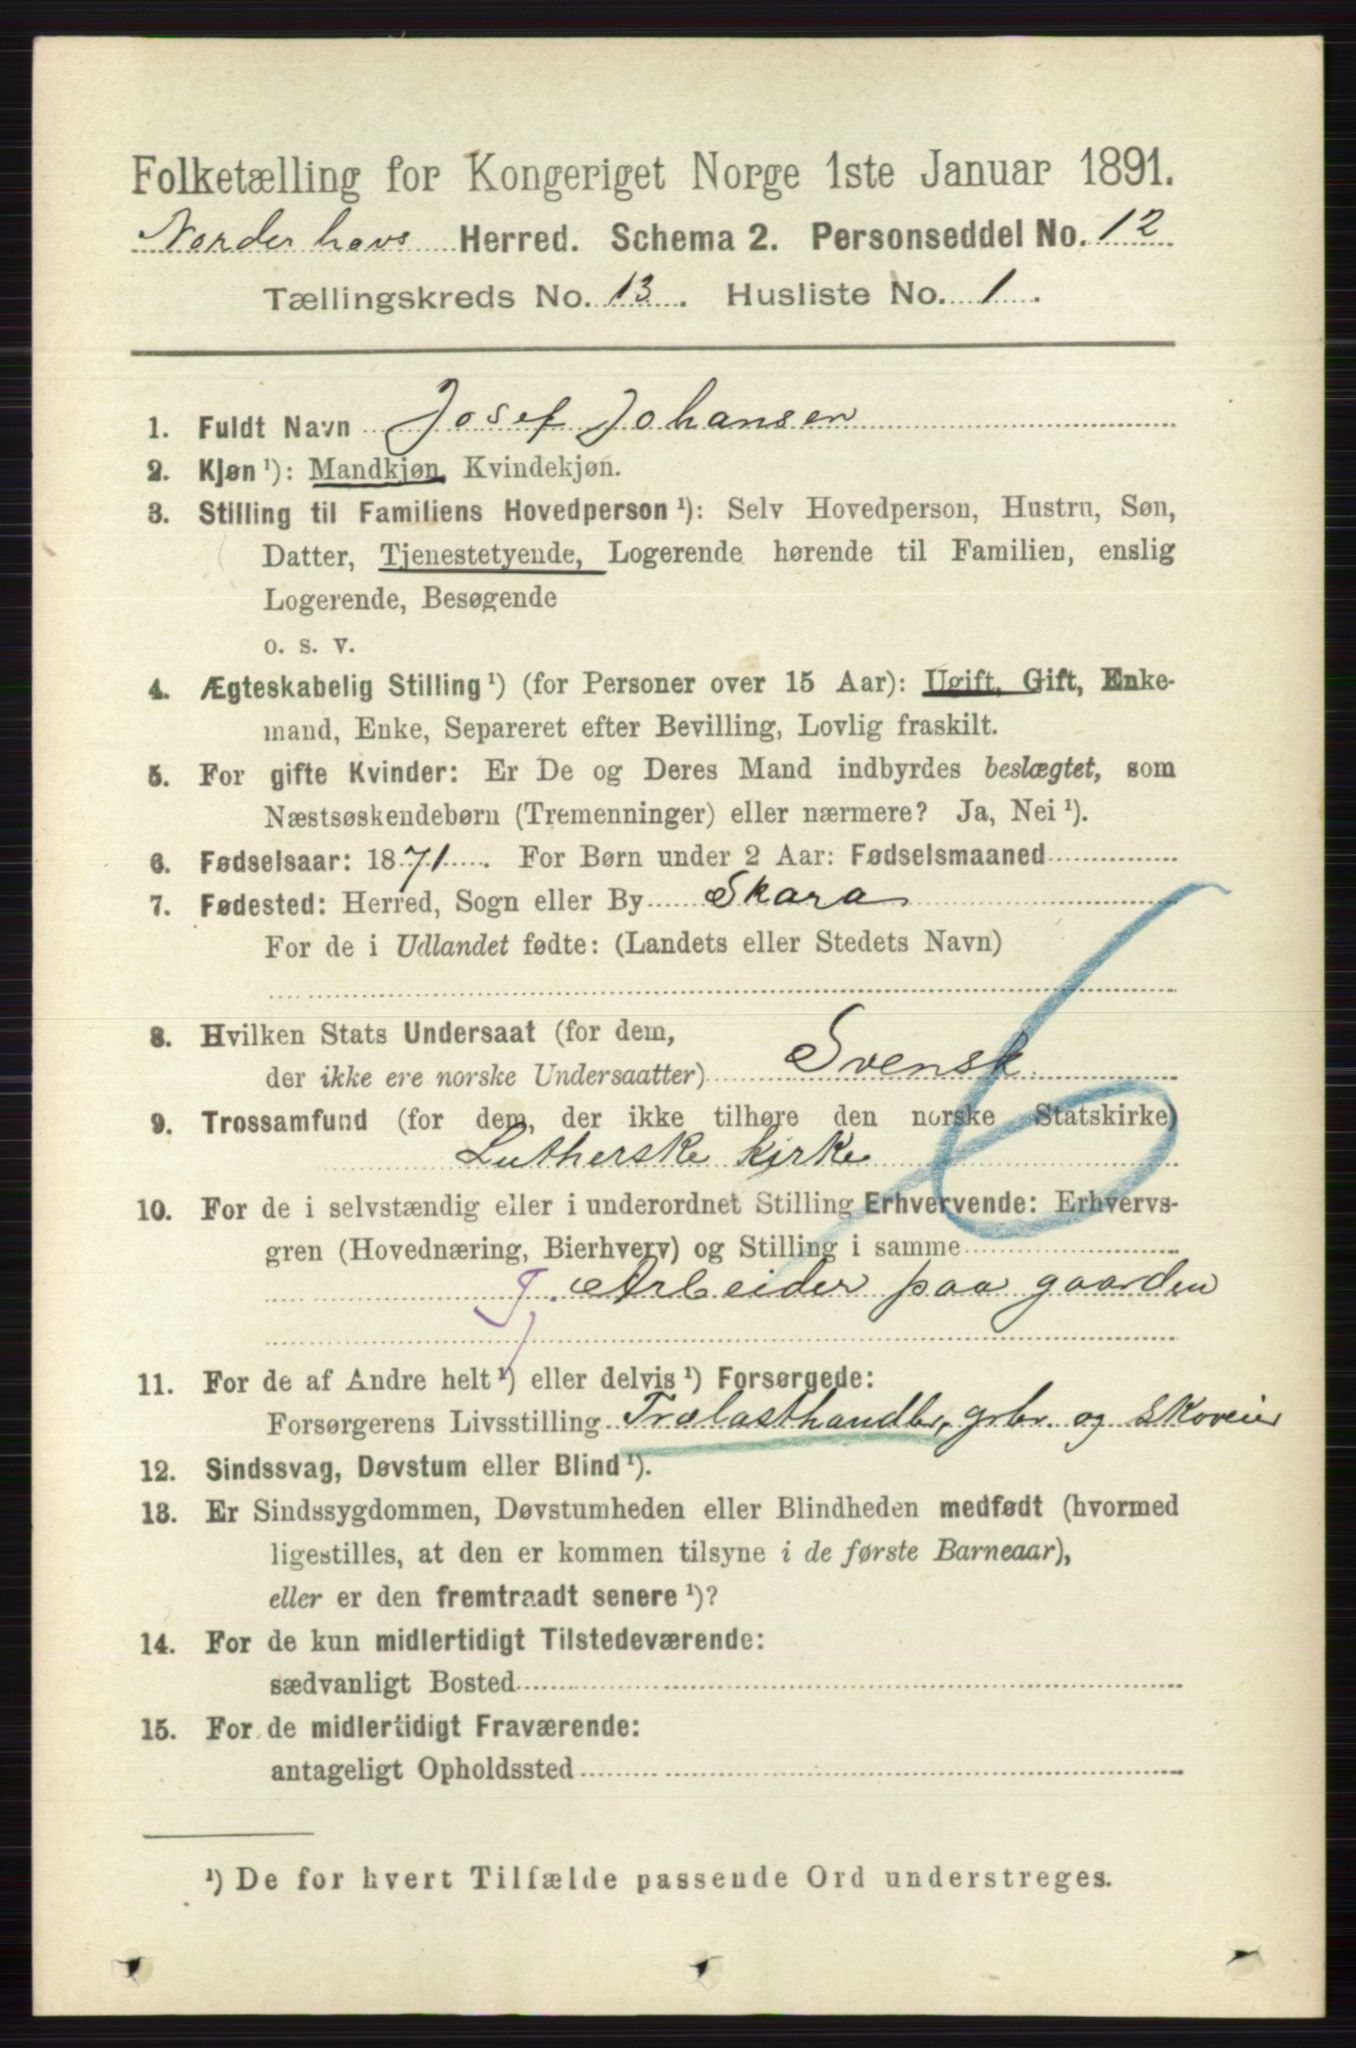 Folketælling for Kongeriget Norge 1ste Januar 1891.
Norderhovs Herred. Schema 2. Personseddel No. 12
Tællingskreds No. 13. Husliste No. 1.
1. Fuldt Navn Josef Johansen
2. Kjøn¹): Mandkjøn, Kvindekjøn.
3. Stilling til Familiens Hovedperson¹): Selv Hovedperson, Hustru, Søn,
Datter, Tjenestetyende, Logerende hørende til Familien, enslig
Logerende, Besøgende
o. s. v.
4. Ægteskabelig Stilling¹) (for Personer over 15 Aar): Ugift, Gift, Enke-
mand, Enke, Separeret efter Bevilling, Lovlig fraskilt.
5. For gifte Kvinder: Er De og Deres Mand indbyrdes beslægtet, som
Næstsøskendebørn (Tremenninger) eller nærmere? Ja, Nei¹).
6. Fødselsaar: 1871. For Børn under 2 Aar: Fødselsmaaned
7. Fødested: Herred, Sogn eller By Skara
For de i Udlandet fødte: (Landets eller Stedets Navn)
8. Hvilken Stats Undersaat (for dem,
der ikke ere norske Undersaatter) Svensk
9. Trossamfund (for dem, der ikke tilhøre den norske Statskirke)
Lutherske kirke
10. For de i selvstændig eller i underordnet Stilling Erhvervende: Erhvervs-
gren (Hovednæring, Bierhverv) og Stilling i samme
Arbeider paa gaarden
11. For de af Andre helt¹) eller delvis¹) Forsørgede:
Forsørgerens Livsstilling Trælasthandler, grbr. og Skoveier
12. Sindssvag, Døvstum eller Blind¹).
13. Er Sindssygdommen, Døvstumheden eller Blindheden medfødt (hvormed
ligestilles, at den er kommen tilsyne i de første Barneaar),
eller er den fremtraadt senere¹)?
14. For de kun midlertidigt Tilstedeværende:
sædvanligt Bosted
15. For de midlertidigt Fraværende:
antageligt Opholdssted
¹) De for hvert Tilfælde passende Ord understreges.